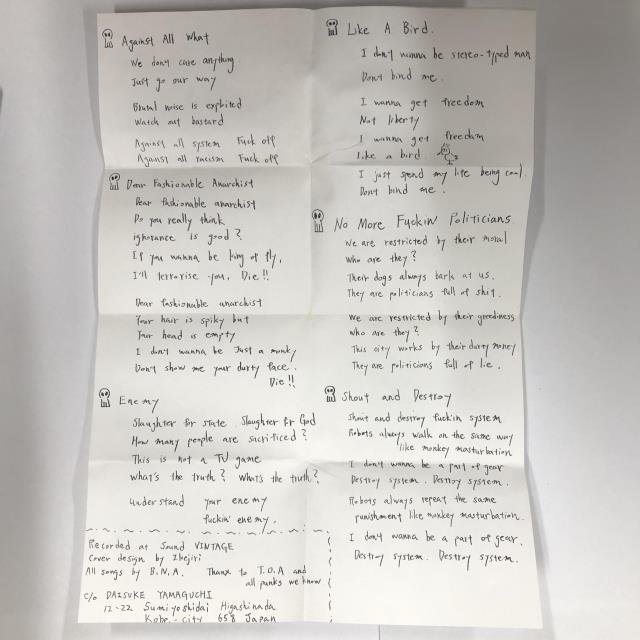 Against All What
We don't care anything.
Just go our way
Brutal noise is exploited
Watch out bastard
Against all system Fuck off
Against all racism Fuck off
Dear Fashionable Anarchist
Dear fashionable anarchist
Do you really think
ignorance is good?
If you wanna be king of fly,
I'll terrorise you, Die!!
Dear fashionable anarchist
Your hair is spiky but
Your head is empty
I don't wanna be Just a monky
Don't show me your durty face.
Die!!
Enemy
Slaughter for state. Slaughter for God
How many people are sacrificed?
This is not a TV game
what's the truth? What's the truth?
understand your enemy
fuckin' enemy.
Recorded at Sound VINTAGE
Cover design by Ikejiri
All songs by B.N.A. Thanx to T.O.A and
all punks we know
c/o DAISUKE YAMAGUCHI
12-22 Sumiyoshidai Higashinada
Kobe-city 658 Japan
Like A Bird.
I don't wanna be stereo-typed man
Don't bind me.
I wanna get freedom
Not liberty
I wanna get freedom
Like a bird
I just spend my life being cool.
Don't bind me.
No More Fuckin Politicians.
We are restricted by their moral
Who are they?
Their dogs always bark at us.
They are politicians full of shit.
We are restricted by their greediness
Who are they?
This city works by their durty money
They are politicions full of lie.
Shout and Destroy
Shout and destroy fuck'in system
Robots always walk on the same way
like monkey masturbation
I don't wanna be a part of gear
Destroy system. Destroy system.
Robots always repeat the same
punishment like monkey masturbation.
I don't wanna be a part of gear.
Destroy system. Destroy system.